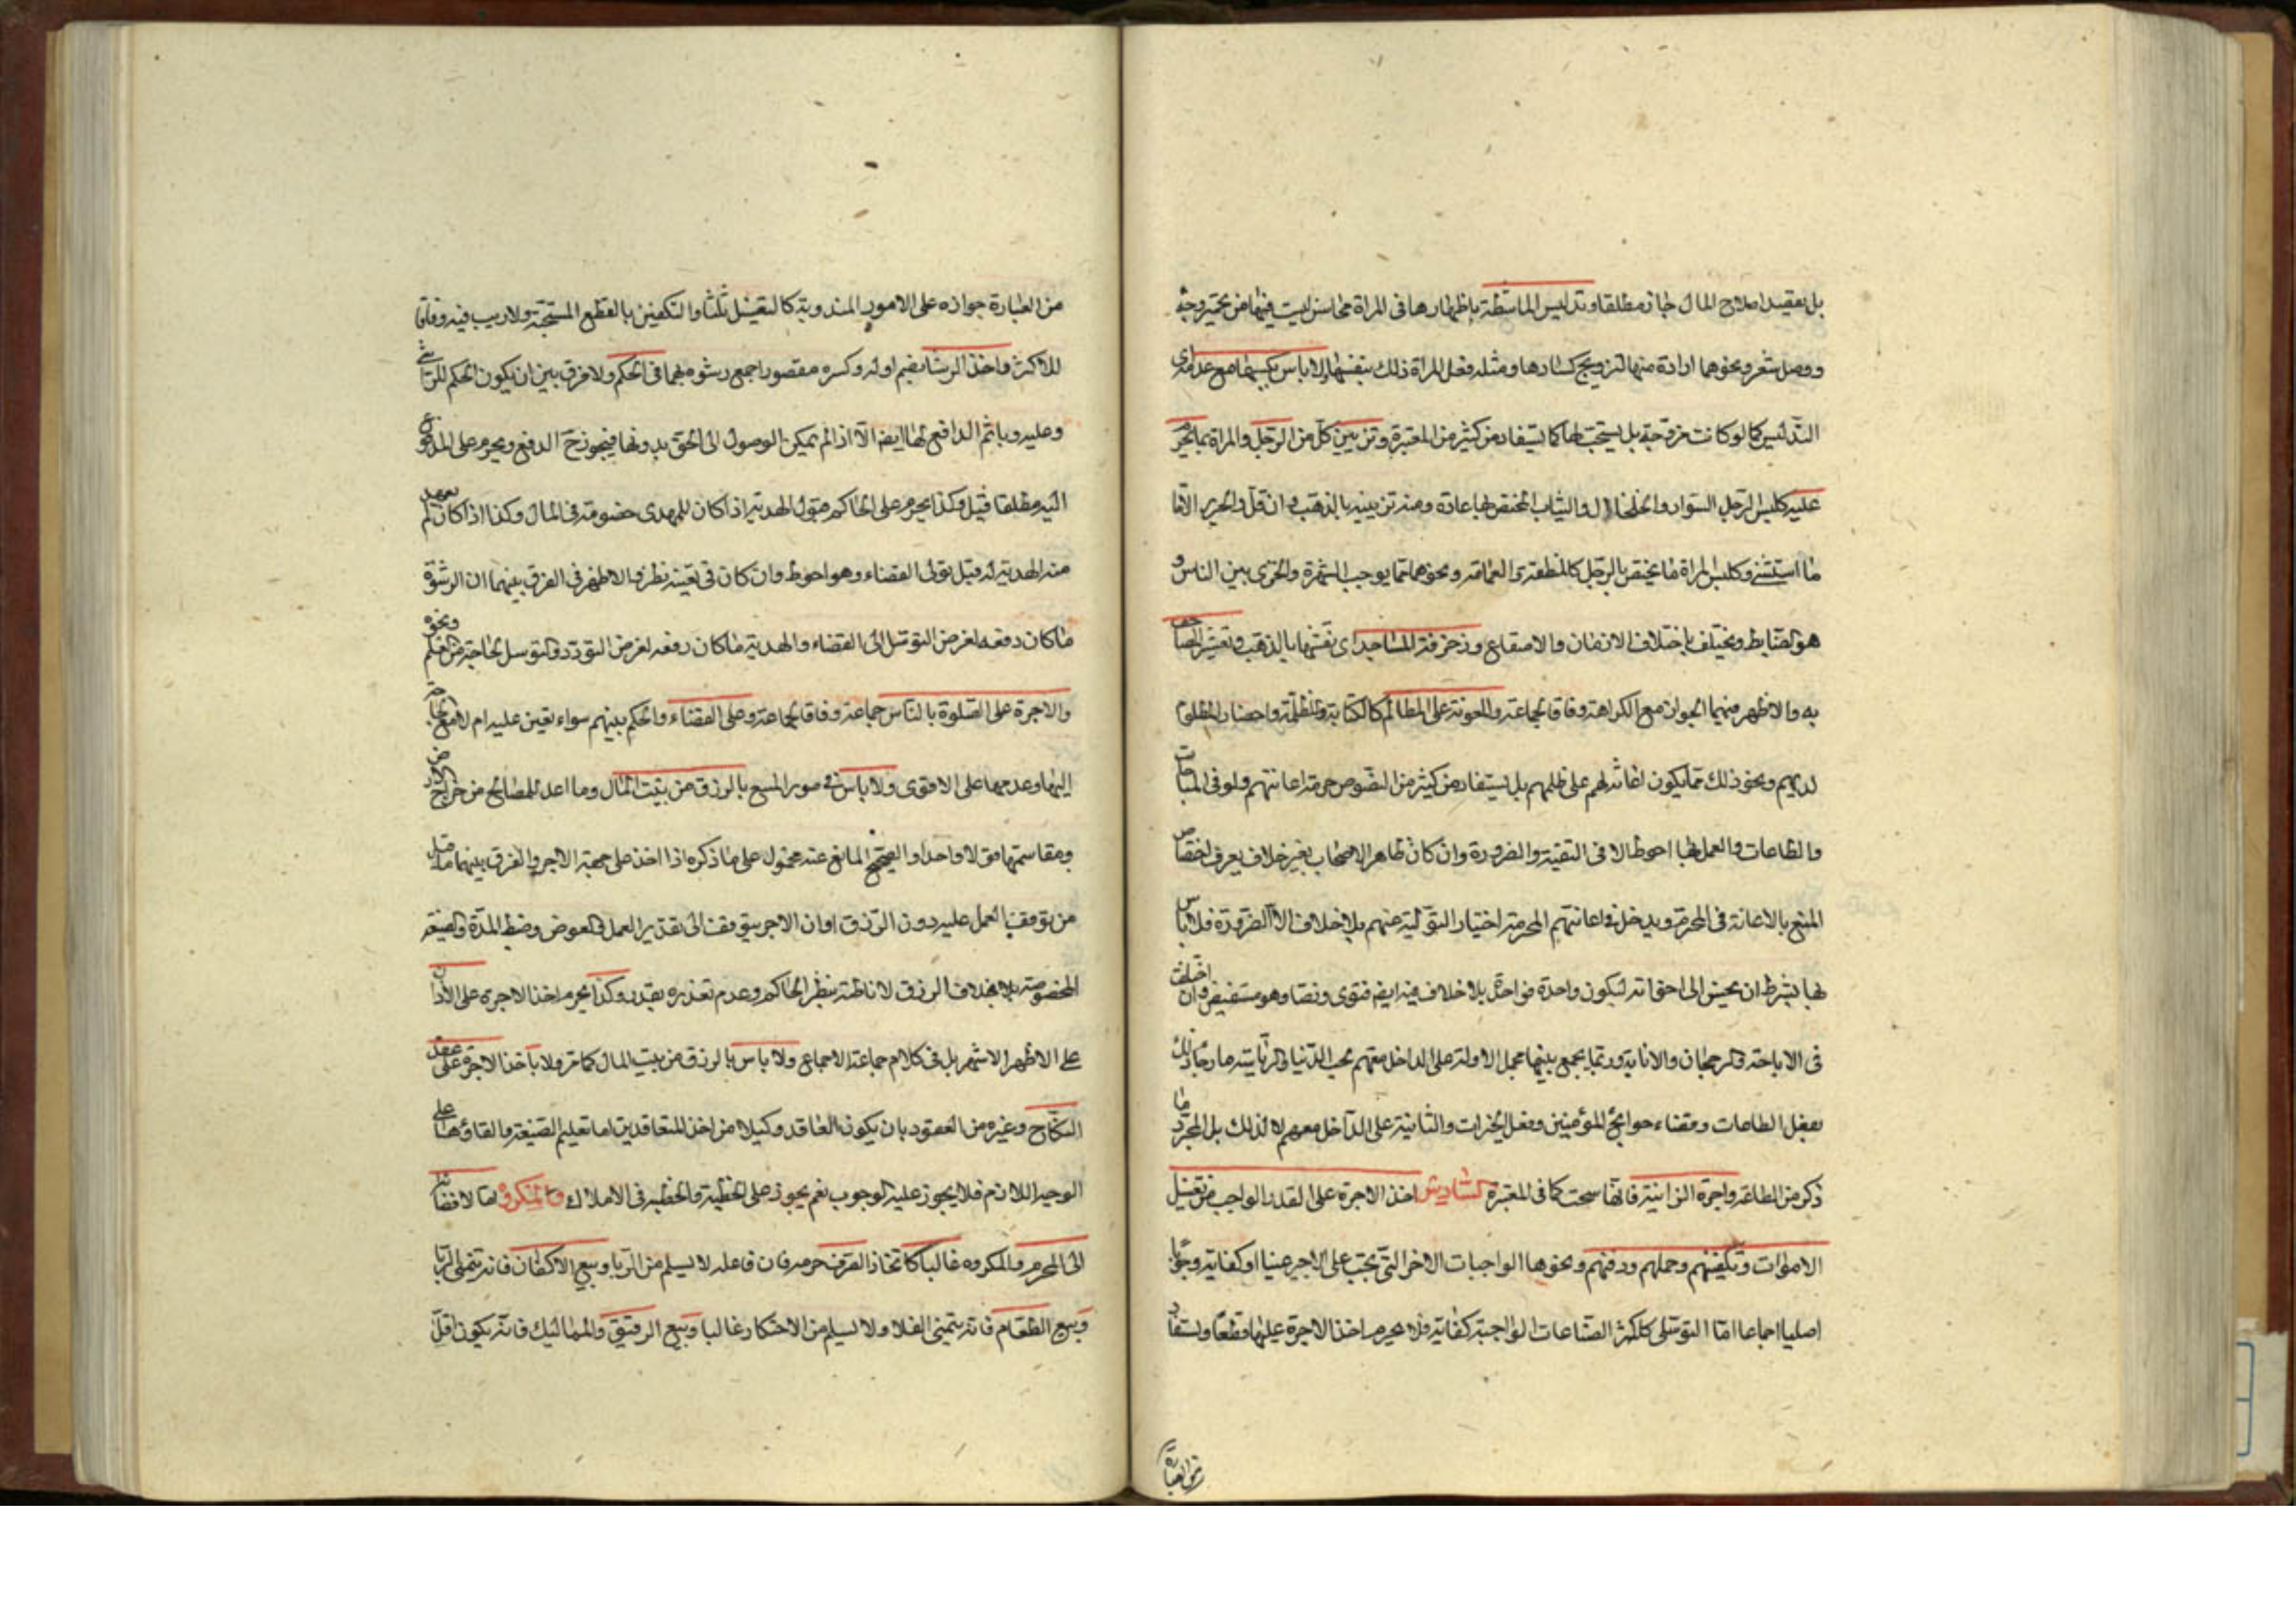 بل بقصد اصلاح المال جاز مطلقا وتدليس الماشطة باظهارها فى المراة محاسن ليست فيها من تحمير وجه
ووصل شعر ونحوهما ارادة منها لتزويج كسادها ومثله فعل المراة ذلك بنفسها ولا باس بكسبها مع عدم
التدليس كما لو كانت مزوجة بل يستحب لها كما يستفاد من كثير من المعتبرة وتزيين كل من الرجل والمراة بما يحرم
عليه كلبس الرجل السوار والخلخال والثياب المختص بها عادة ومنه تزيينه بالذهب وان قل والحرير الا
ما استثنى وكلبس المراة ما يختص بالرجل كالمنطقة والعمامة ونحوهما مما يوجب الشهرة والخزى بين الناس و
هو الضابط ويختلف باختلاف الازمان والاصقاع وزخرفة المساجد اى نقشها بالذهب وتعشير المصاحف
به والاظهر فيهما الجواز مع الكراهة وفاقا لجماعة والمعونة على المظالم كالكتابة للظلمة واحضار المظلوم
لديهم ونحو ذلك مما يكون اعانة لهم على ظلمهم بل يستفاد من كثير من النصوص حرمة اعانتهم ولو فى المباحات
والطاعات والعمل بها احوط الا فى التقية والضرورة وان كان ظاهر الاصحاب بغير خلاف يعرف اختصاص
المنع بالاعانة فى المحرم ويدخل فى اعانتهم المحرمة اختيار التولية عنهم بلا خلاف الا الضرورة فلا باس
بها بشرط ان يحسن الى اخوانه ليكون واحدة بواحدة بلا خلاف فيه ايضم فتوى ونصا وهو مستفيض وان اختلفت
فى الاباحة والرجحان والاثابة وربما يجمع بينهما بحمل الاولة على الداخل معهم بحب الدنيا والرئاسة مازجا ذلك
بفعل الطاعات وقضاء حوائج المؤمنين وفعل الخيرات والثانية على الداخل معهم لا لذلك بل لمجرد ما
ذكر من الطاعة واجرة الزانية فانها سحت كما فى المعتبرة السادس اخذ الاجرة على القدر الواجب من تغسيل
الاموات وتكفينهم وحملهم ودفنهم ونحوها الواجبات الاخر التى تجب على الاجير عينا او كفاية وجوبا
اصليا اجماعا اما التوصلى كاكثر الصناعات الواجبة كفاية فلا يحرم اخذ الاجرة عليها قطعا ويستفاد
من العبارة
من العبارة جوازه على الامور المندوبة كالتغسيل ثلثا والتكفين بالقطع المستحبة ولا ريب فيه وفاقا
للاكثر واخذ الرشا بضم اوله وكسره مقصورا جمع رشوة بهما فى الحكم ولا فرق بين ان يكون الحكم للراشى
وعليه وياثم الدافع لها ايضم الا اذا لم يمكن الوصول الى الحق بدونها فيجوز ح الدفع ويحرم على المدفوع
اليه مطلقا قيل وكذا يحرم على الحاكم قبول الهدية اذا كان للمهدى خصومة فى المال وكذا اذا كان لم يعهد
منه الهدية له قبل تولى القضاء وهو احوط وان كان فى تعينه نظر والاظهر فى الفرق بينهما ان الرشوة
ما كان دفعه لغرض التوصل الى القضاء والهدية ما كان دفعه لغرض التودد والتوسل لحاجة من العلم ونحوه
والاجرة على الصلوة بالناس جماعة وفاقا لجماعة وعلى القضاء والحكم بينهم سواء تعين عليه ام لا مع الحاجة
اليها وعدمها على الاقوى ولا باس فى صور المنع بالرزق من بيت المال وما اعد للمصالح من خراج الارض
ومقاسمتها قولا واحدا والصحيح المانع عنه محمول على ما ذكره اذا اخذ على جهة الاجر والفرق بينهما ما قيل
من توقف العمل عليه دون الرزق او ان الاجر يتوقف الى تقدير العمل والعوض وضبط المدة والصيغة
المخصوصة بخلاف الرزق لاناطته بنظر الحاكم وعدم تعذره بقدر وكذا يحرم اخذ الاجرة على الاذان
على الاظهر الاشهر بل فى كلام جماعة الاجماع ولا باس بالرزق من بيت المال كما مر ولا باخذ الاجرة على عقد
النكاح وغيره من العقود بان يكون العاقد وكيلا من احد المتعاقدين اما تعليم الصيغة والقاؤها على
الوجه اللازم فلا يجوز عليه لوجوبه نعم يجوز على الخطبة والخطبة فى الاملاك والمكروه اما لافضائه
الى المحرم والمكروه غالبا كاتخاذ الصرف حرفة فان فاعله لا يسلم من الربا وبيع الاكفان فانه يتمنى الوبا
وبيع الطعام فانه يتمنى الغلا ولا يسلم من الاحتكار غالبا وبيع الرقيق والمماليك فانه يكون اقل